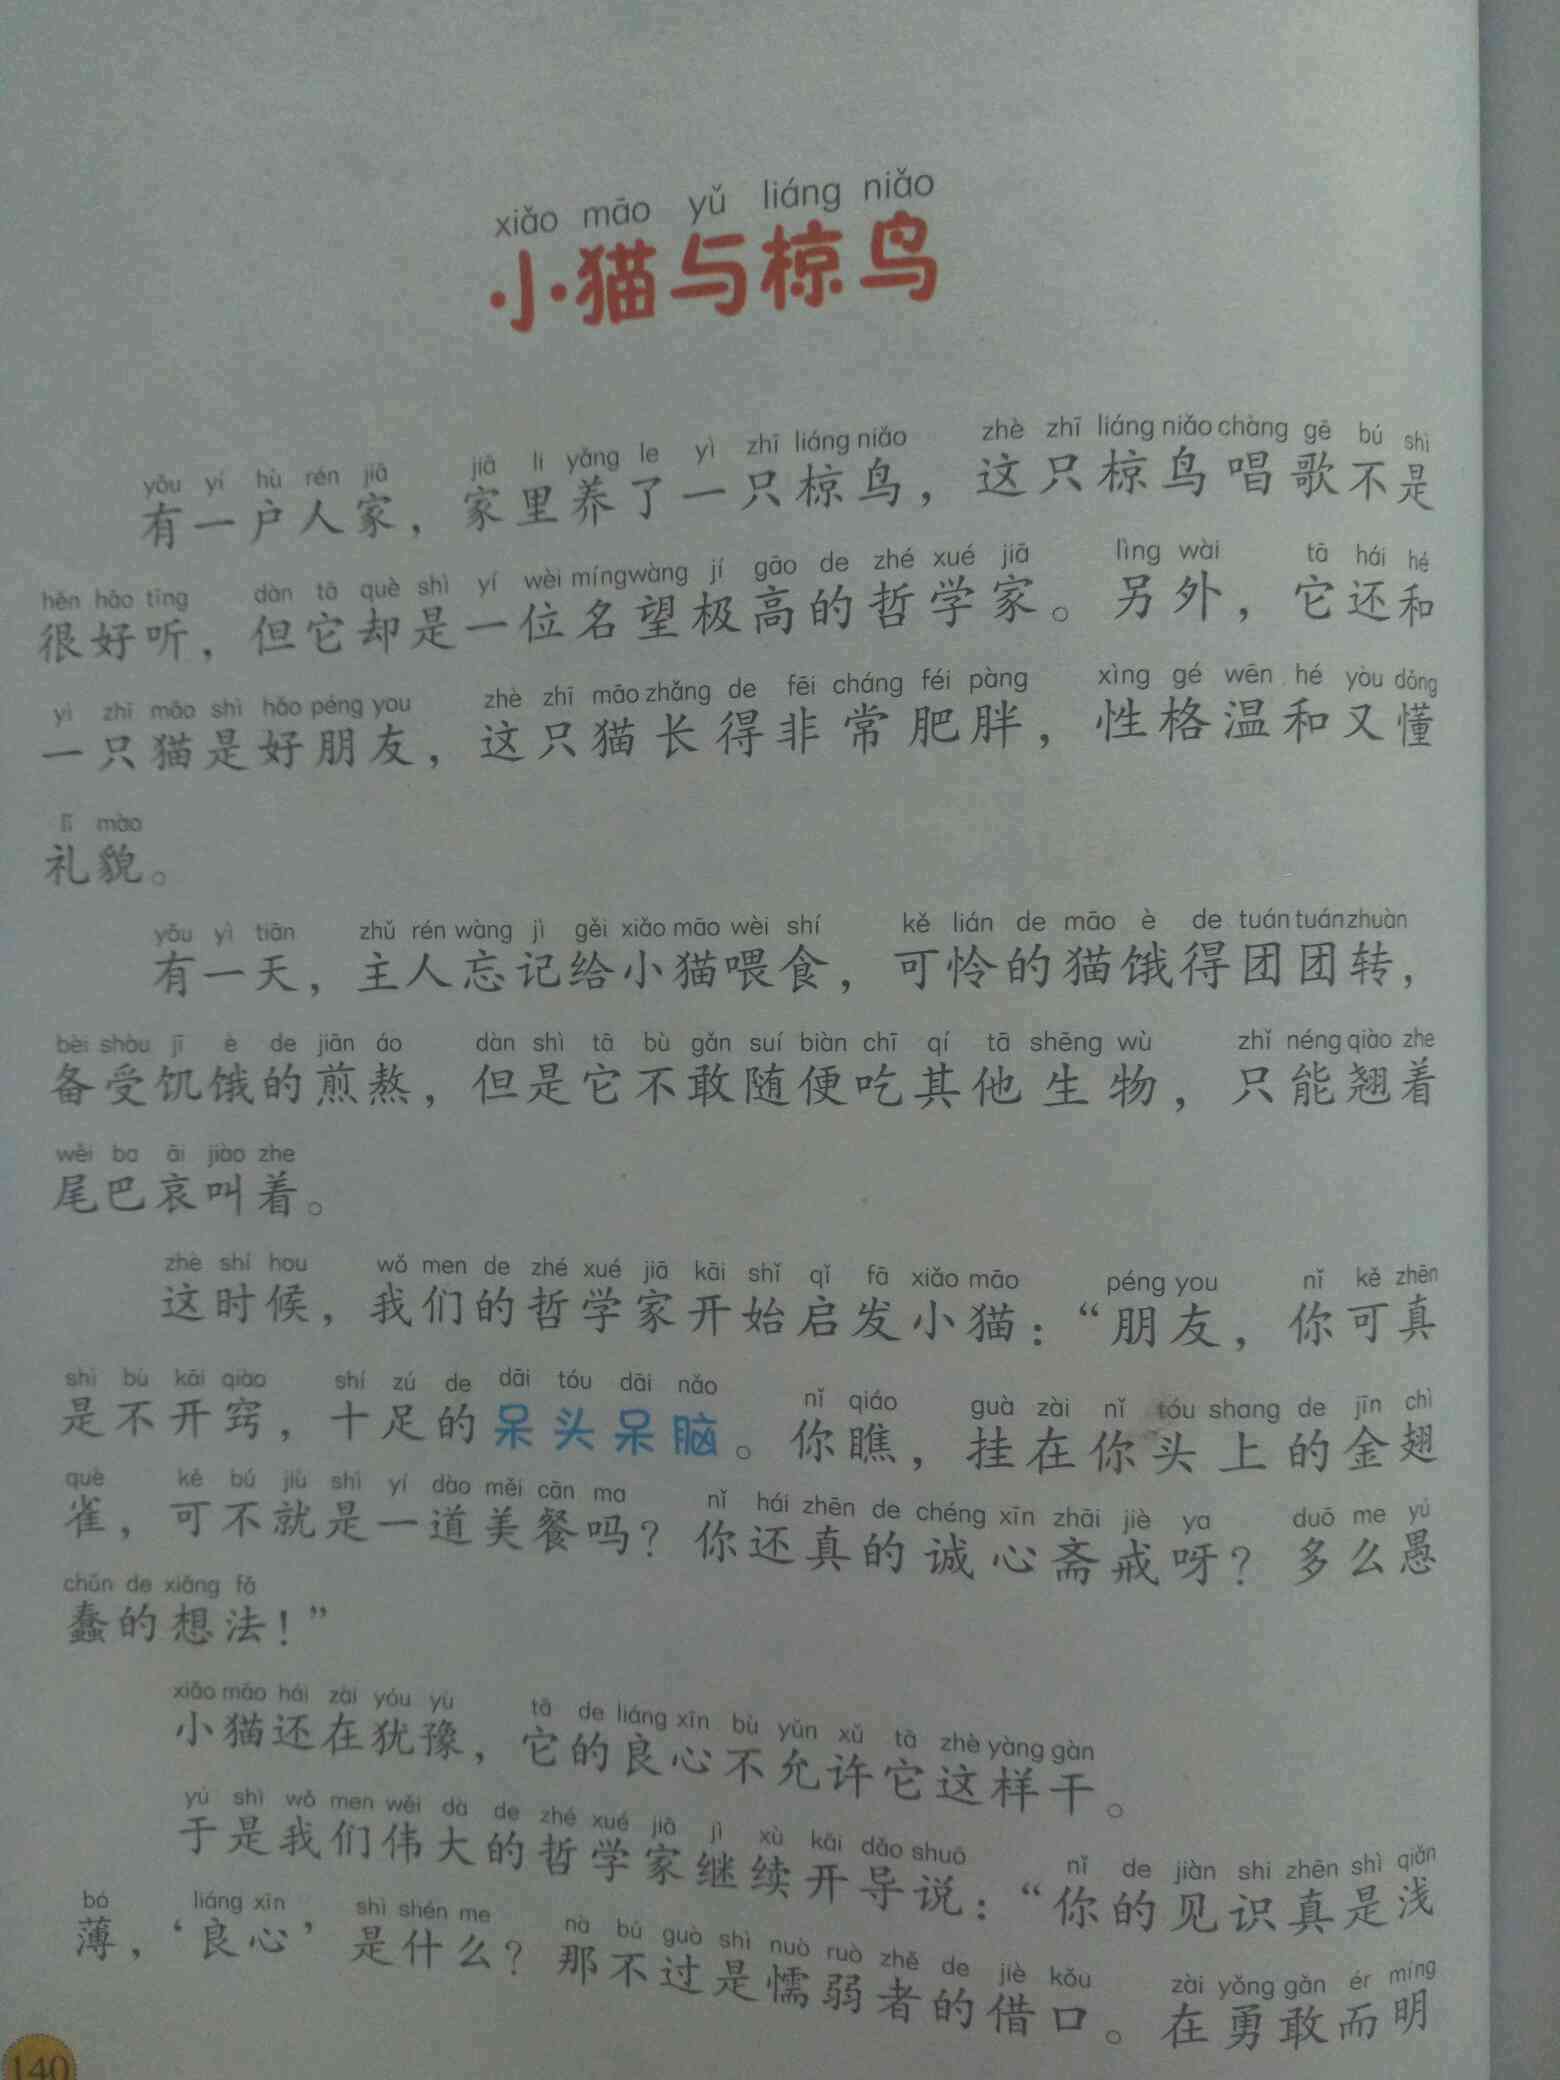 xiǎo māo yǔ liáng niǎo
小猫与椋鸟
yǒu yí hù rén jiā jiā li yǎng le yì zhī liáng niǎo zhè zhī liáng niǎo chàng gē bú shì
有一户人家，家里养了一只椋鸟，这只椋鸟唱歌不是
hěn hǎo tīng dàn tā què shì yí wèi míng wàng jí gāo de zhé xué jiā lìng wài tā hái hé
很好听，但它却是一位名望极高的哲学家。另外，它还和
yì zhī māo shì hǎo péng you zhè zhī māo zhǎng de fēi cháng féi pàng xìng gé wēn hé yòu dǒng
一只猫是好朋友，这只猫长得非常肥胖，性格温和又懂
lǐ mào
礼貌。
yǒu yì tiān zhǔ rén wàng jì gěi xiǎo māo wèi shí kě lián de māo è de tuán tuán zhuàn
有一天，主人忘记给小猫喂食，可怜的猫饿得团团转，
bèi shòu jī è de jiān áo dàn shì tā bù gǎn suí biàn chī qí tā shēng wù zhǐ néng qiào zhe
备受饥饿的煎熬，但是它不敢随便吃其他生物，只能翘着
wěi ba āi jiào zhe
尾巴哀叫着。
zhè shí hou wǒ men de zhé xué jiā kāi shǐ qǐ fā xiǎo māo péng you nǐ kě zhēn
这时候，我们的哲学家开始启发小猫：“朋友，你可真
shì bù kāi qiào shí zú de dāi tóu dāi nǎo nǐ qiáo guà zài nǐ tóu shang de jīn chì
是不开窍，十足的呆头呆脑。你瞧，挂在你头上的金翅
què kě bú jiù shì yí dào měi cān ma nǐ hái zhēn de chéng xīn zhāi jiè ya duō me yú
雀，可不就是一道美餐吗？你还真的诚心斋戒呀？多么愚
chǔn de xiǎng fǎ
蠢的想法！”
xiǎo māo hái zài yóu yù tā de liáng xīn bù yǔn xǔ tā zhè yàng gàn
小猫还在犹豫，它的良心不允许它这样干。
yú shì wǒ men wěi dà de zhé xué jiā jì xù kāi dǎo shuō nǐ de jiàn shi zhēn shì qiǎn
于是我们伟大的哲学家继续开导说：“你的见识真是浅
bó liáng xīn shì shén me nà bú guò shì nuò ruò zhě de jiè kǒu zài yǒng gǎn ér míng
薄，‘良心’是什么？那不过是懦弱者的借口。在勇敢而明
140